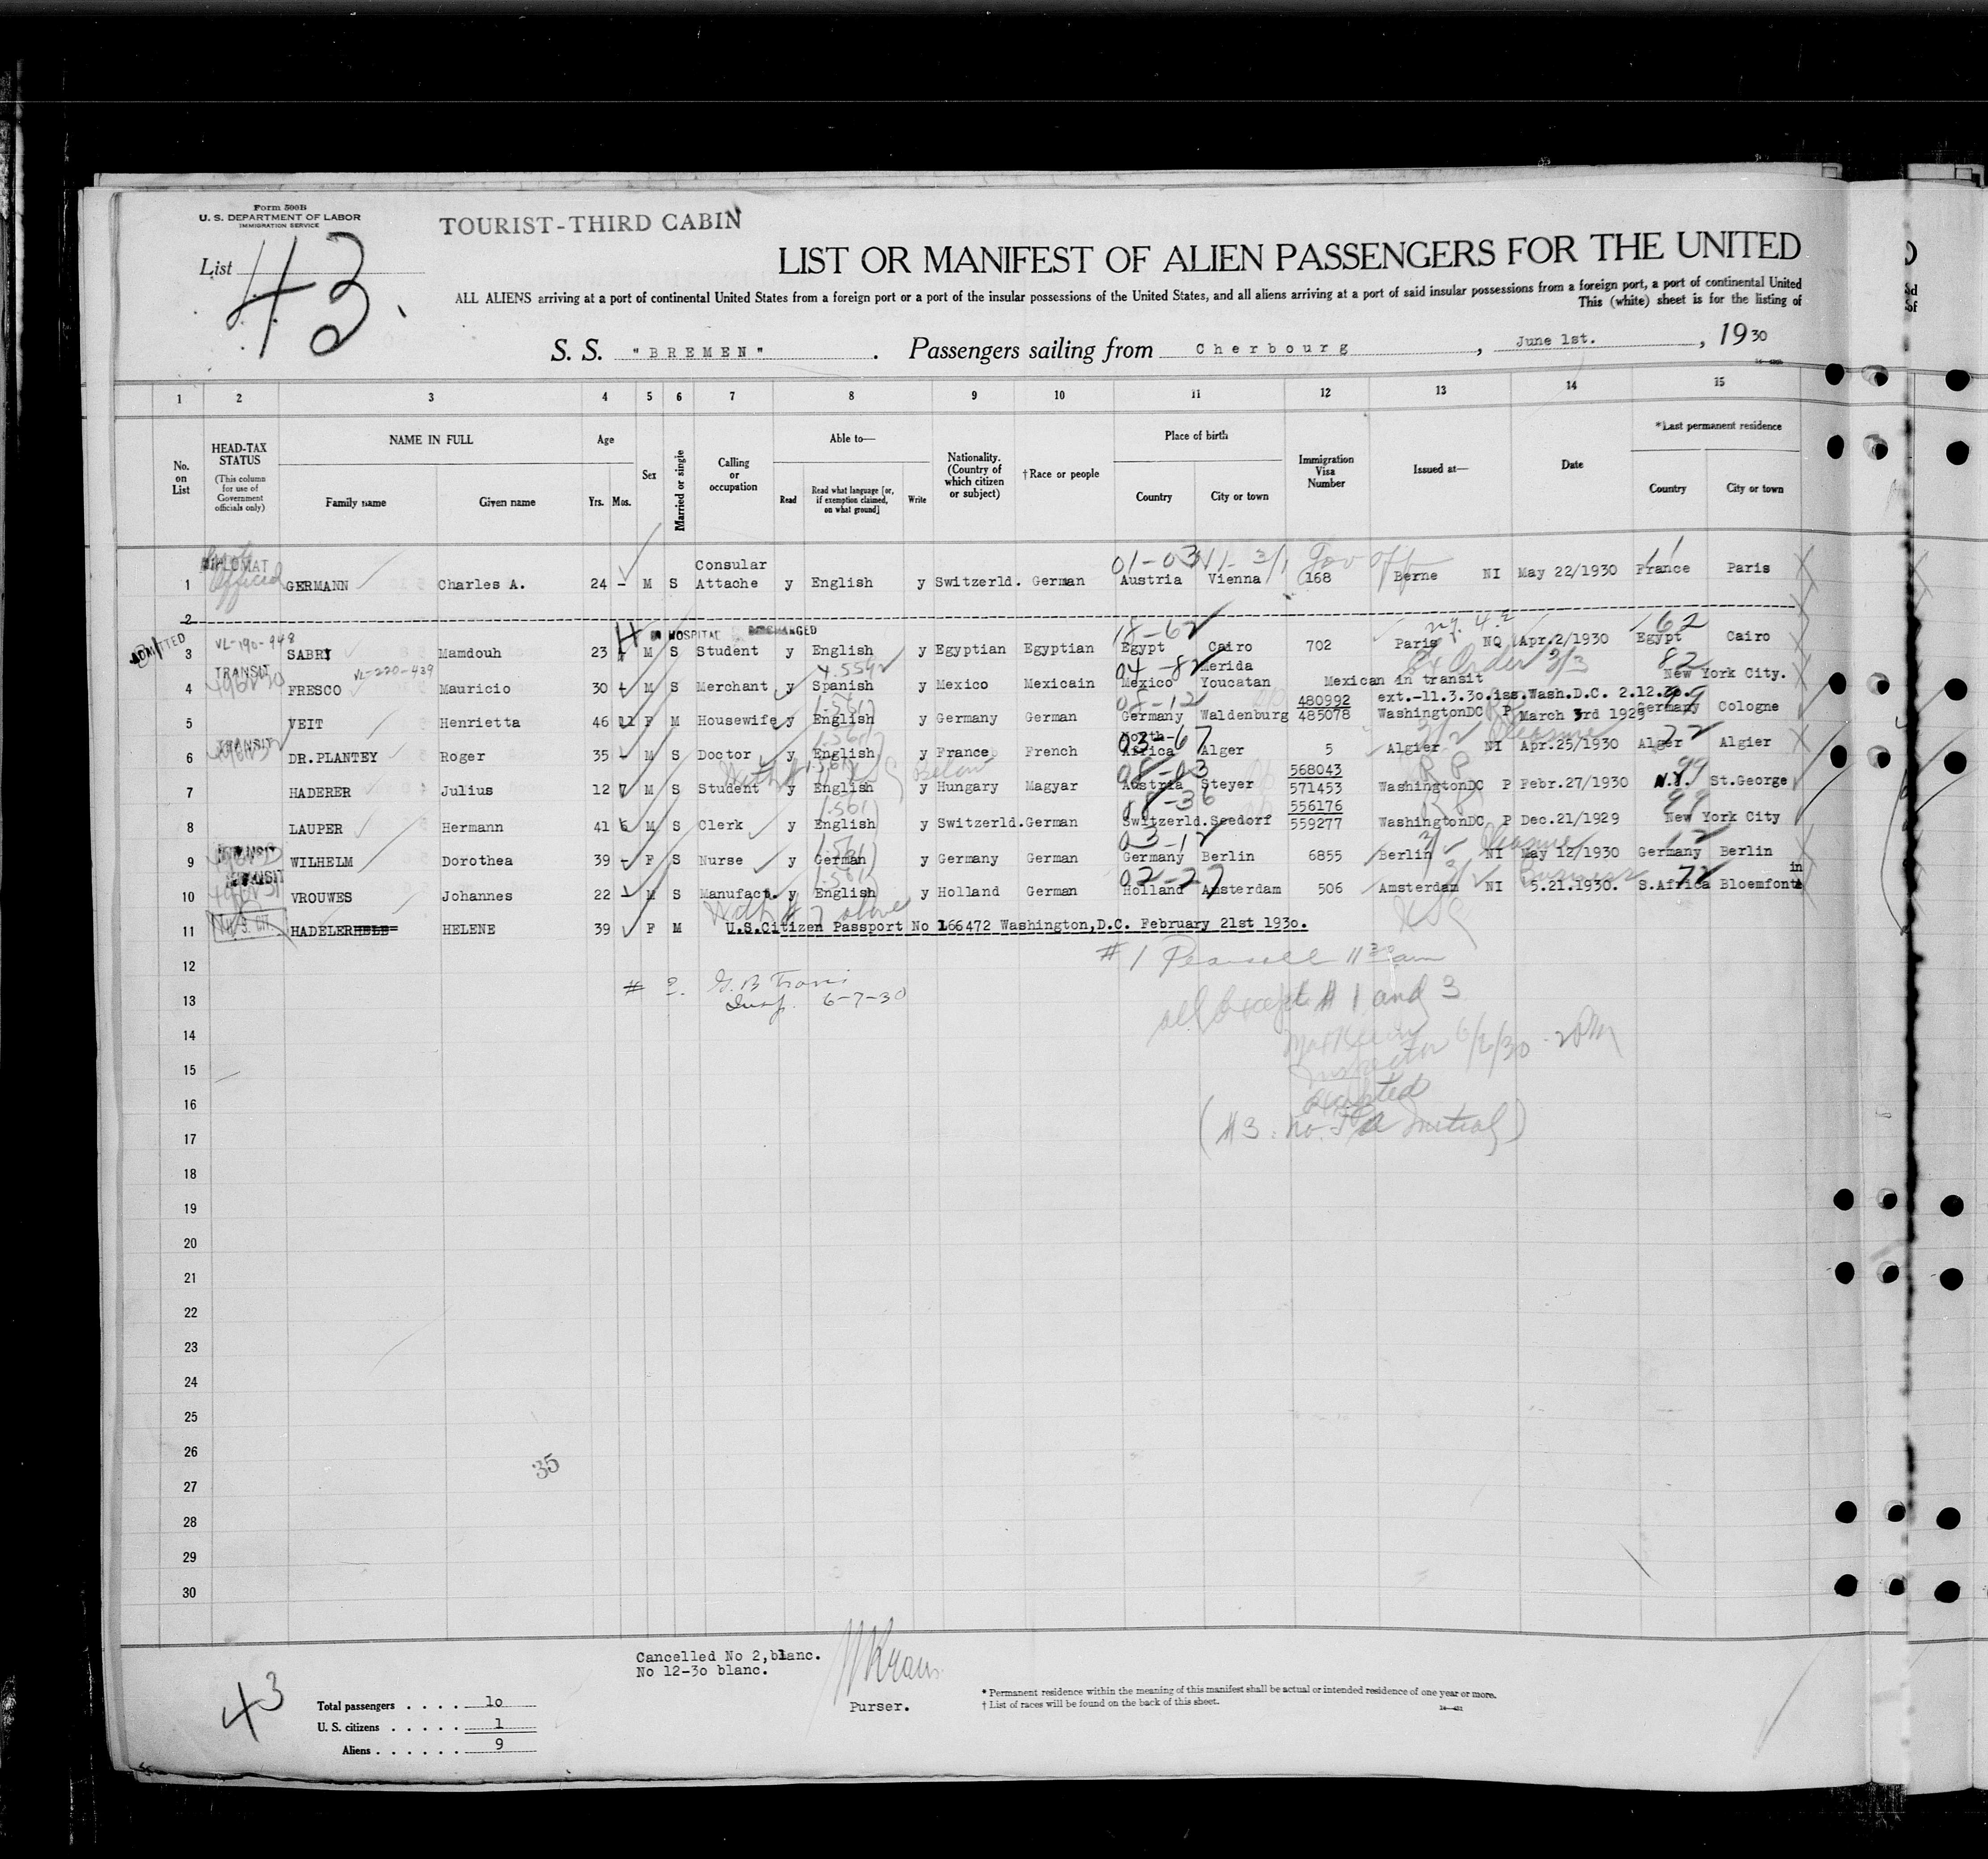 Form 500B
U. S. DEPARTMENT OF LABOR
IMMIGRATION SERVICE
TOURIST-THIRD CABIN
List 43.
LIST OR MANIFEST OF ALIEN PASSENGERS FOR THE UNITED
ALL ALIENS arriving at a port of continental United States from a foreign port or a port of the insular possessions of the United States, and all aliens arriving at a port of said insular possessions from a foreign port, a port of continental United
This (white) sheet is for the listing of
S. S. "BREMEN". Passengers sailing from Cherbourg, June 1st., 1930
1 2 3 4 5 6 7 8 9 10 11 12 13 14 15
No. on List
HEAD-TAX STATUS
(This column for use of Government officials only)
NAME IN FULL
Family name Given name
Age
Yrs. Mos.
Sex
Married or single
Calling or occupation
Able to—
Read Read what language [or, if exemption claimed, on what ground] Write
Nationality. (Country of which citizen or subject)
†Race or people
Place of birth
Country City or town
Immigration Visa Number
Issued at—
Date
*Last permanent residence
Country City or town
DIPLOMAT Official 01-03 V1- 3/1 Gov off
1 GERMANN Charles A. 24 - M S Consular Attache y English y Switzerld. German Austria Vienna 168 Berne NI May 22/1930 France Paris
2
ADMITTED VL-190-948 IN HOSPITAL DISCHARGED 18-62 62
3 SABRY Mamdouh 23 M S Student y English y Egyptian Egyptian Egypt Cairo 702 Paris NQ Apr.2/1930 Egypt Cairo
TRANSIT VL-220-439 04-82 3/3 82
4 FRESCO Mauricio 30 M S Merchant y Spanish y Mexico Mexicain Mexico Merida Youcatan Mexican in transit New York City.
480992 ext.-11.3.30.iss.Wash.D.C. 2.12.30. 99
5 VEIT Henrietta 46 11 F M Housewife y English y Germany German Germany Waldenburg 485078 WashingtonDC P March 3rd 1929 Germany Cologne
TRANSIT 03-67 Pleasure 72
6 DR.PLANTEY Roger 35 - M S Doctor y English y France French North-Africa Alger 5 Algier NI Apr.25/1930 Alger Algier
568043 RP 99
7 HADERER Julius 12 7 M S Student y English y Hungary Magyar Austria Steyer 571453 WashingtonDC P Febr.27/1930 N.Y. St.George
08-36 556176 RP 99
8 LAUPER Hermann 41 6 M S Clerk y English y Switzerld. German Switzerld. Seedorf 559277 WashingtonDC P Dec.21/1929 New York City
TRANSIT 03-12 Pleasure 12
9 WILHELM Dorothea 39 - F S Nurse y German y Germany German Germany Berlin 6855 Berlin NI May 12/1930 Germany Berlin
TRANSIT 02-27 Business 72
10 VROUWES Johannes 22 - M S Manufact. y English y Holland German Holland Amsterdam 506 Amsterdam NI 5.21.1930. S.Africa Bloemfontein
With # 7 above
U. S. CIT.
11 HADELER HELENE 39 F M U.S.Citizen Passport No 166472 Washington,D.C. February 21st 1930.
12
# 1 11 30 am
# 3. G. B. Travis
13
Insp. 6-7-30
all except # 1 and 3
14
Inspector 6/6/30 2 PM
15
16
17
(#3: no Initial)
18
19
20
21
22
23
24
25
26
35
27
28
29
30
Cancelled No 2, blanc.
No 12-30 blanc.
WKraus
Purser.
43
Total passengers . . . . 10
U. S. citizens . . . . . . 1
Aliens . . . . . . . 9
* Permanent residence within the meaning of this manifest shall be actual or intended residence of one year or more.
† List of races will be found on the back of this sheet.